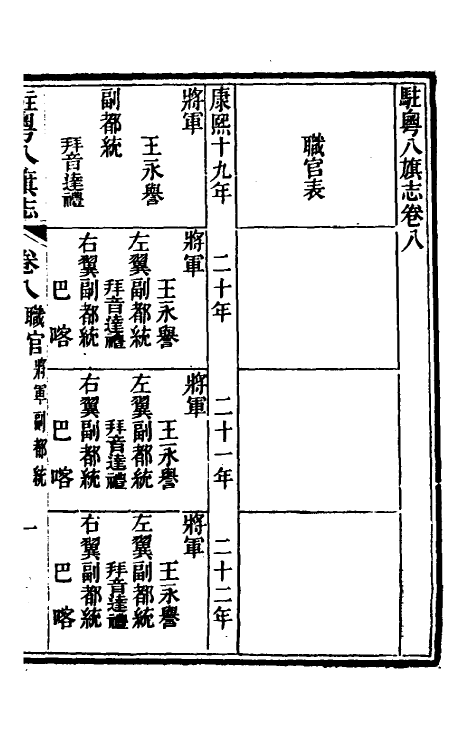 駐粵八旗志卷八
職官表
康熙十九年
將軍
王永譽
副都統
拜音達禮
二十年
將軍
王永譽
左翼副都統
拜音達禮
右翼副都統
巴喀
二十一年
將軍
王永譽
左翼副都統
拜音達禮
右翼副都統
巴喀
二十二年
將軍
王永譽
左翼副都統
拜音達禮
右翼副都統
巴喀
駐粵八旗志 卷八 職官 將軍副都統 一